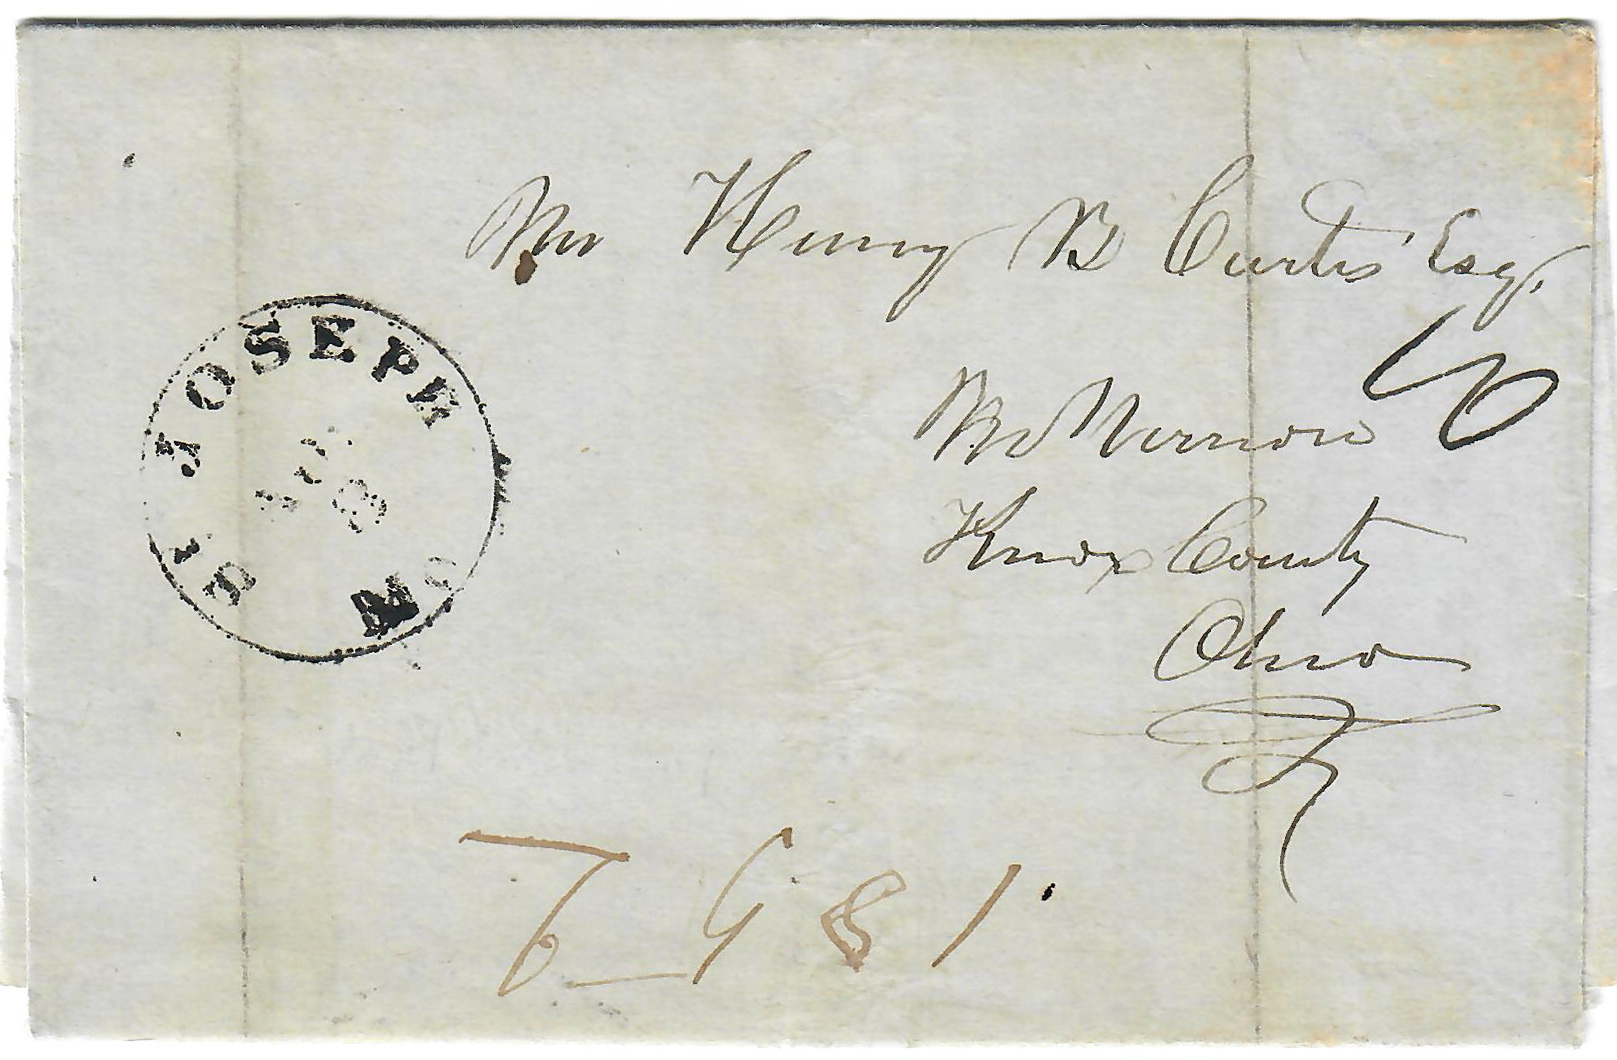 Mr Henry B Curtis Esq.
10
Mt Vernon
Knox County
Ohio
ST. JOSEPH
8
Mo